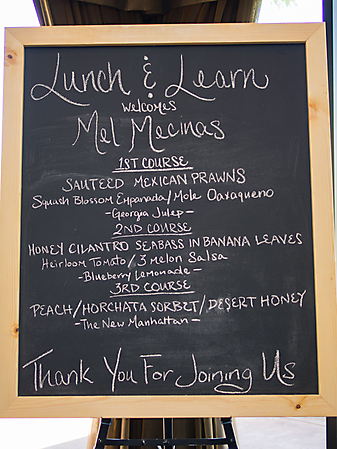 Lunch & Learn
&
welcomes
Mel Mecinas
1ST COURSE
SAUTEED MEXICAN PRAWNS
Squash Blossom Empanada/Mole Oaxaqueno
-Georgia Julep-
2ND COURSE
HONEY CILANTRO SEABASS IN BANANA LEAVES
Heirloom Tomato/3 Melon Salsa
-Blueberry Lemonade-
3RD COURSE
PEACH/HORCHATA SORBET/DESERT HONEY
-The New Manhattan-
Thank You For Joining Us